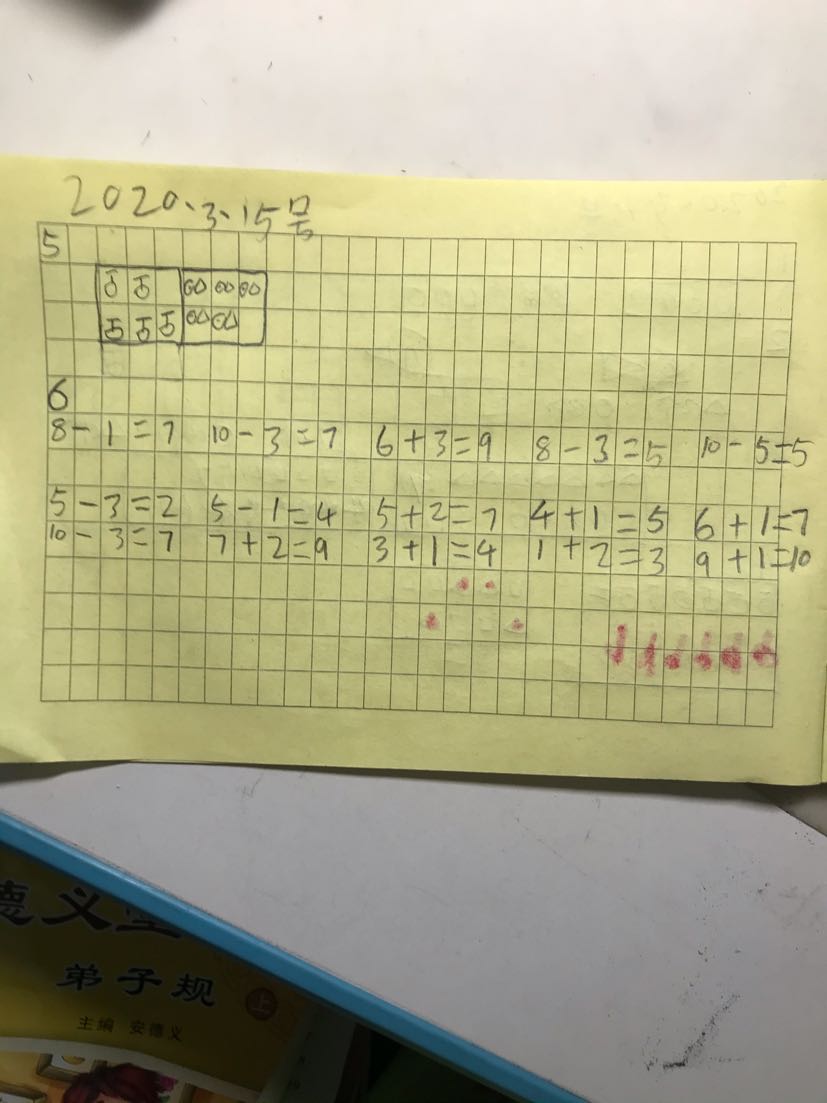 2020、3、15号
5
6
8-1=7 10-3=7 6+3=9 8-3=5 10-5=5
5-3=2 5-1=4 5+2=7 4+1=5 6+1=7
10-3=7 7+2=9 3+1=4 1+2=3 9+1=10
德义堂
弟子规 上
主编 安德义